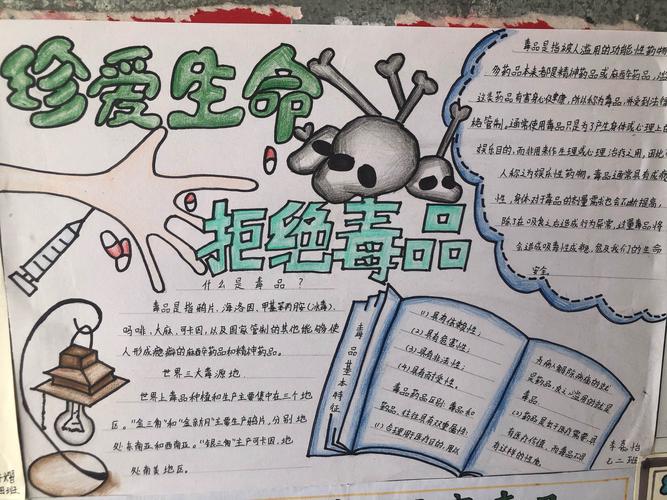 珍爱生命
拒绝毒品
毒品是指被人滥用的功能性药物
类药品本来都是精神药品或麻醉药品，
这类药品有害身心健康，所以称为毒品，并受到法律
管制。通常使用毒品只是为了产生身体或心理上的
娱乐目的，而非用来作生理或心理治疗之用，因此
人称之为娱乐性药物。毒品通常具有成瘾
性，身体对于毒品的剂量需求也会不断提高，
除了在吸食之后造成行为异常，过量毒品将
会造成吸毒性成瘾，危及我们的生命
安全。
什么是毒品？
毒品是指鸦片、海洛因、甲基苯丙胺（冰毒）、
吗啡、大麻、可卡因，以及国家管制的其他能够使
人形成瘾癖的麻醉药品和精神药品。
世界三大毒源地
世界上毒品种植和生产主要集中在三个地
区。“金三角”和“金新月”主要生产鸦片，分别地
处东南亚和西南亚。“银三角”主产可卡因，地
处南美地区。
毒品基本特征
(1)具有依赖性；
(2)具有危害性；
(3)具有非法性；
(4)具有耐受性。
毒品药品区别：毒品和
药品，往往具有双重属性：
(1)合理用于医疗目的，用以
为病人解除病痛的就
是药品，反之滥用的就是
毒品
(2)药品是用于医疗需要，具
有医疗价值，而毒品不具
有这样的性质。
李嘉怡
七二班